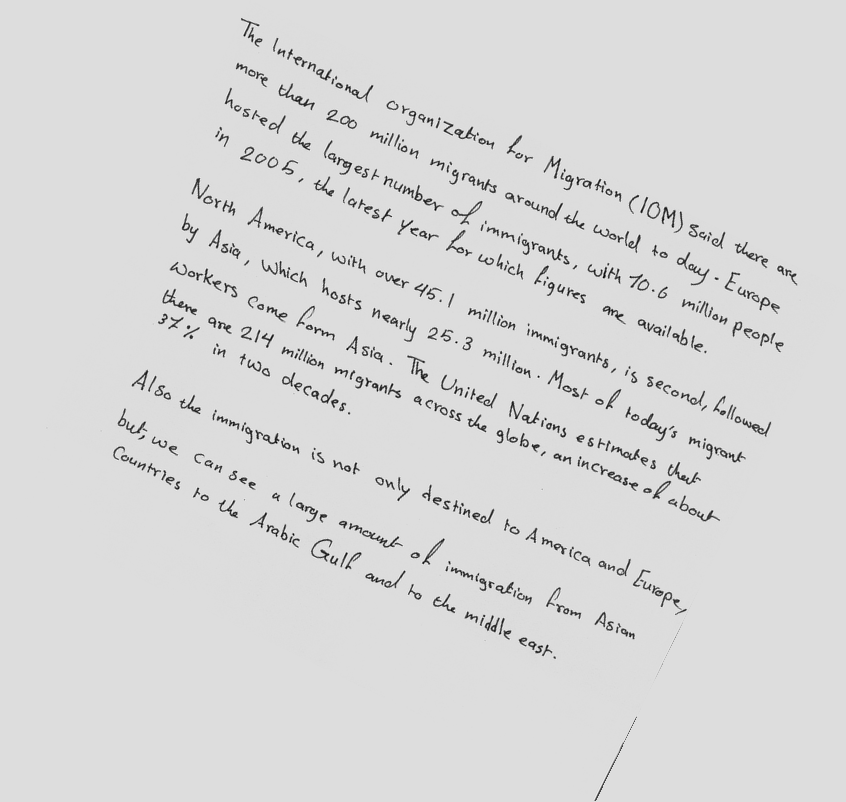 The International organization for Migration (IOM) said there are
more than 200 million migrants around the world to day. Europe
hosted the largest number of immigrants, with 70.6 million people
in 2005, the latest year for which figures are available.
North America, with over 45.1 million immigrants, is second, followed
by Asia, which hosts nearly 25.3 million. Most of today's migrant
workers come form Asia. The United Nations estimates that
there are 214 million migrants across the globe, an increase of about
37% in two decades.
Also the immigration is not only destined to America and Europe,
but, we can see a large amount of immigration from Asian
Countries to the Arabic Gulf and to the middle east.